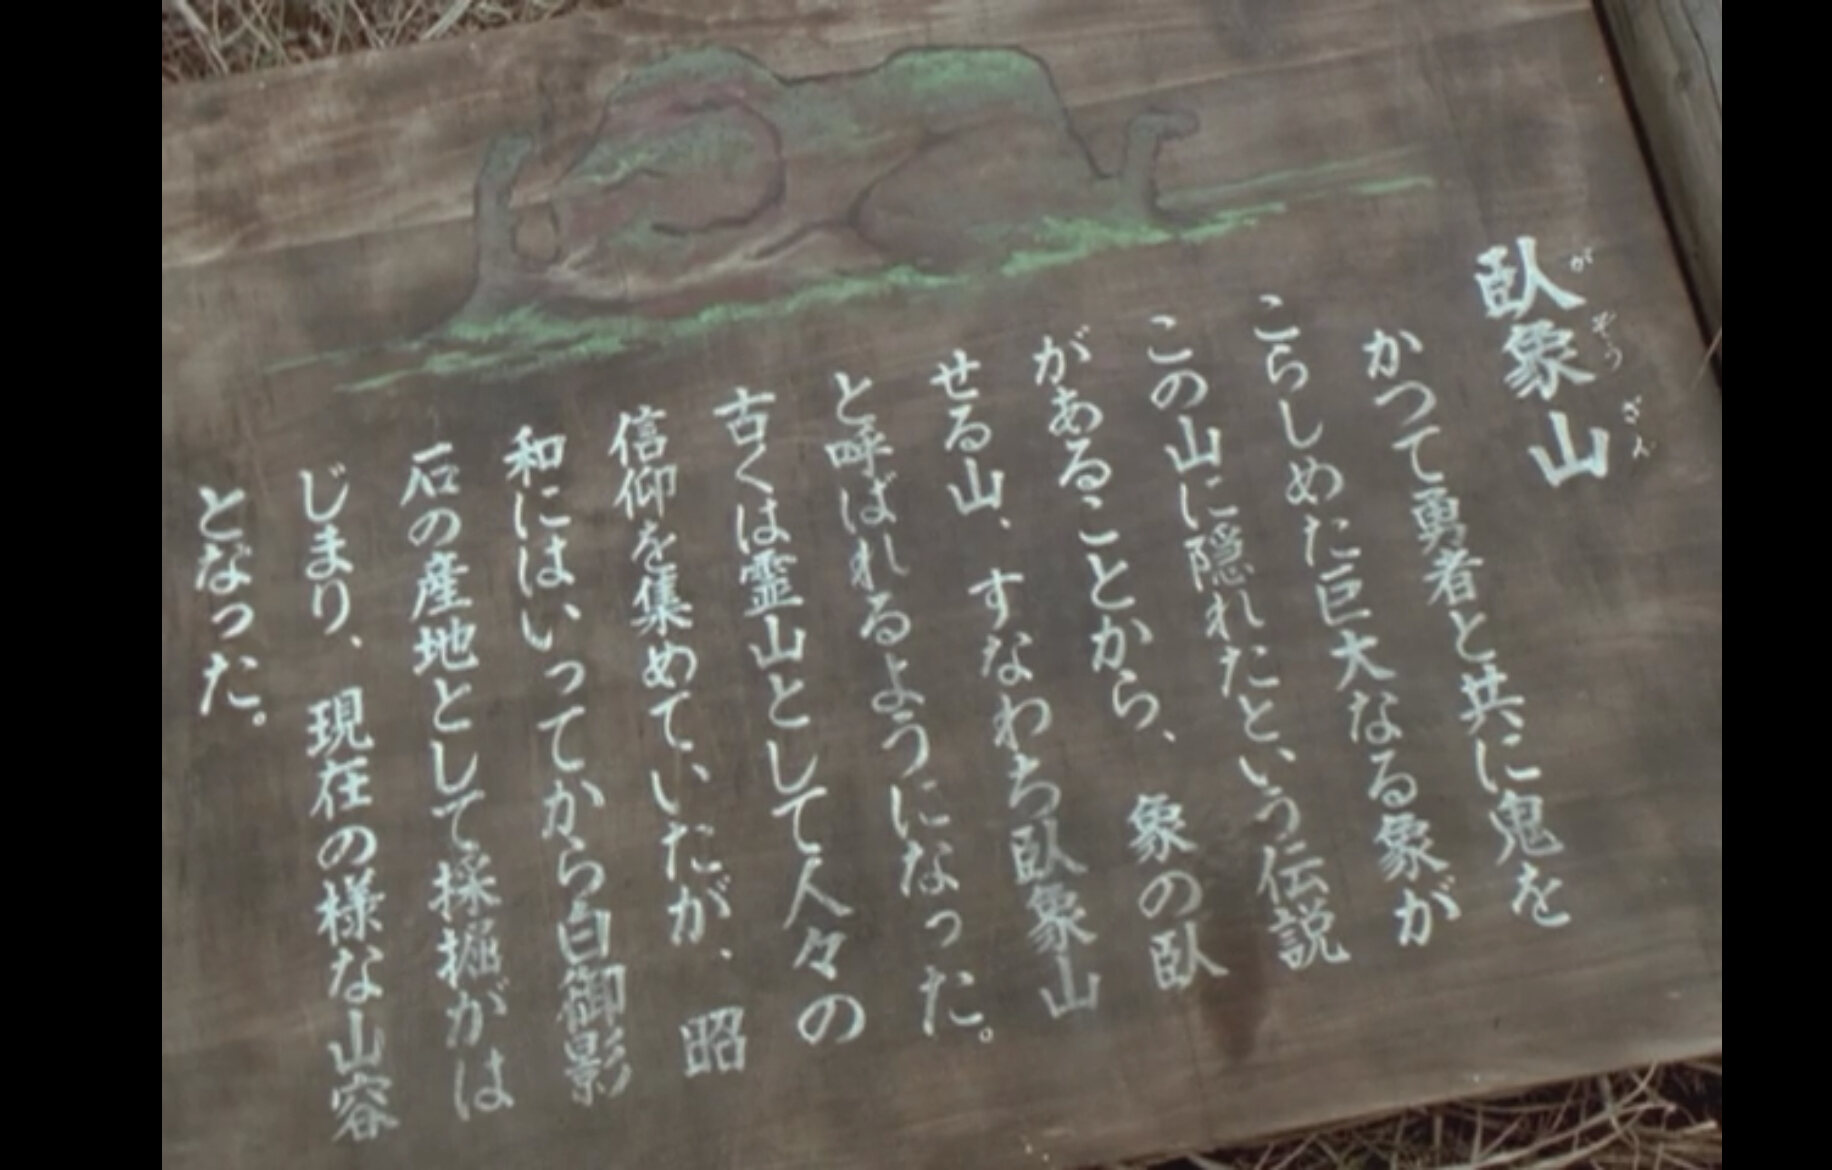 臥象山
がぞうざん
かつて勇者と共に鬼を
こらしめた巨大なる象が
この山に隠れたという伝説
があることから、象の臥
せる山、すなわち臥象山
と呼ばれるようになった。
古くは霊山として人々の
信仰を集めていたが、昭
和にはいってから白御影
石の産地として採掘がは
じまり、現在の様な山容
となった。